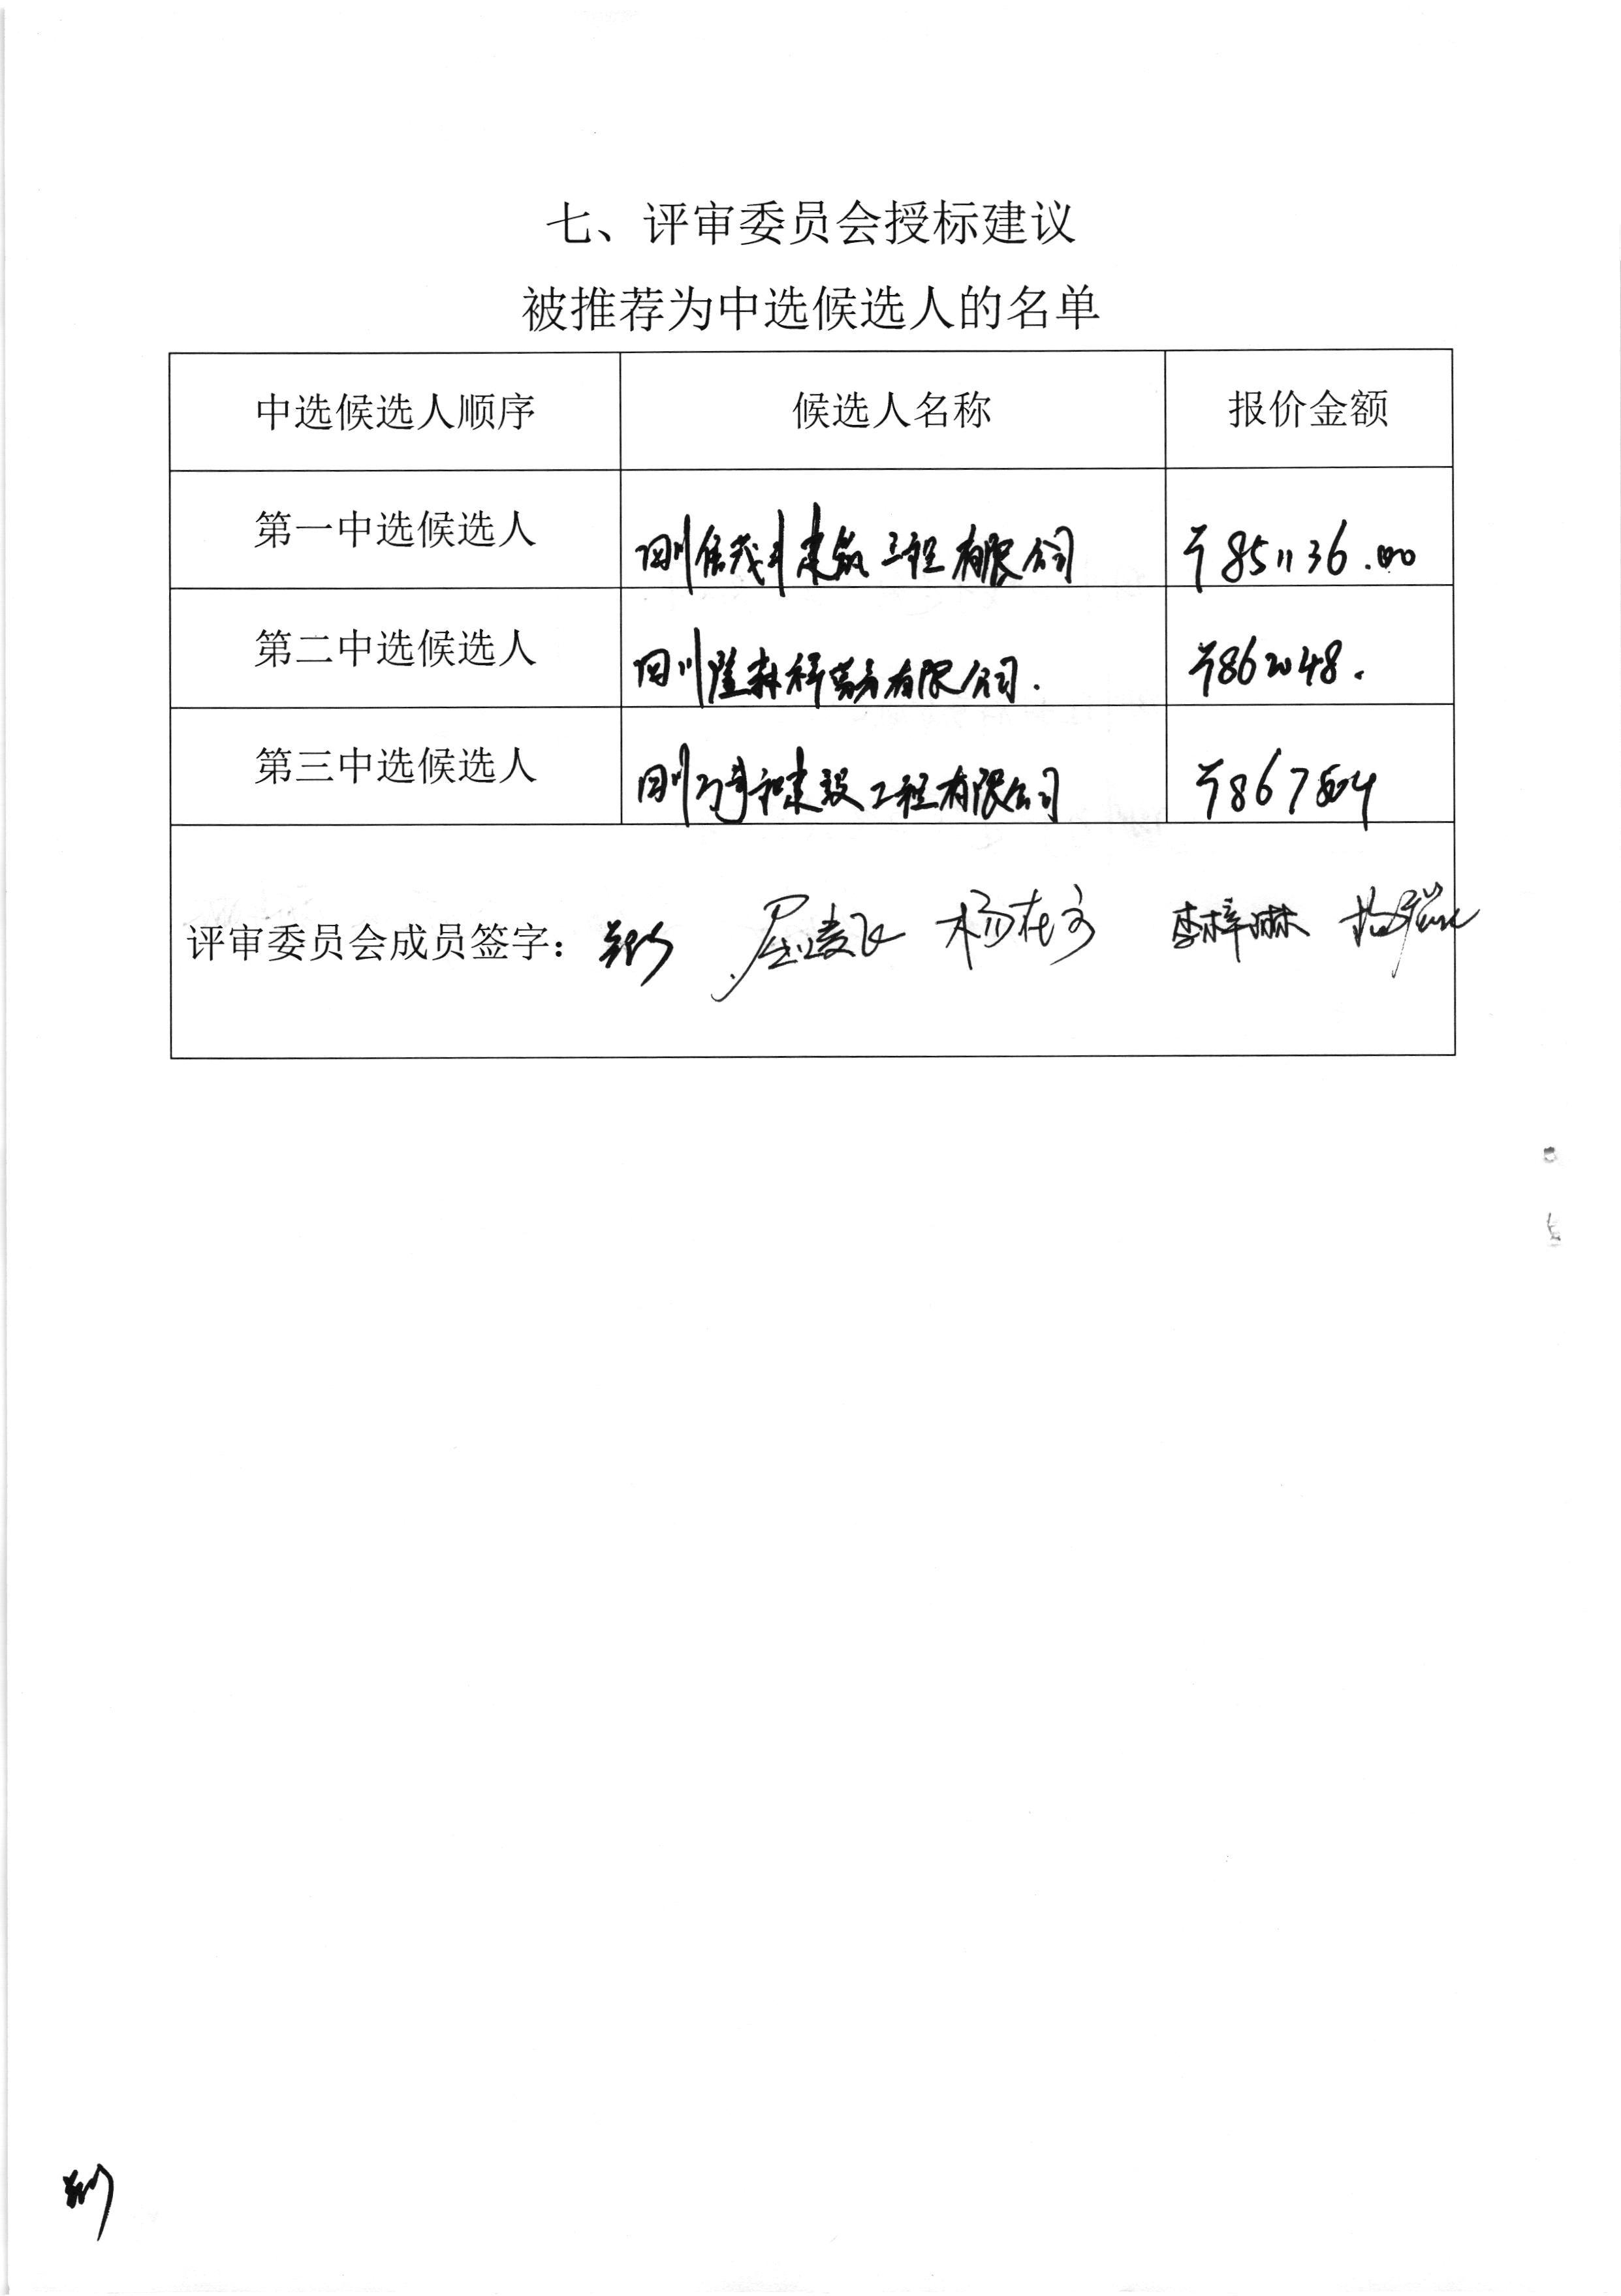 七、评审委员会授标建议
被推荐为中选候选人的名单
中选候选人顺序 候选人名称 报价金额
第一中选候选人 四川信茂丰建筑工程有限公司 ¥851136.00
第二中选候选人 四川隆森科劳务有限公司. ¥862048.
第三中选候选人 四川建设工程有限公司 ¥867804
评审委员会成员签字： 屈凌飞 李梓琳